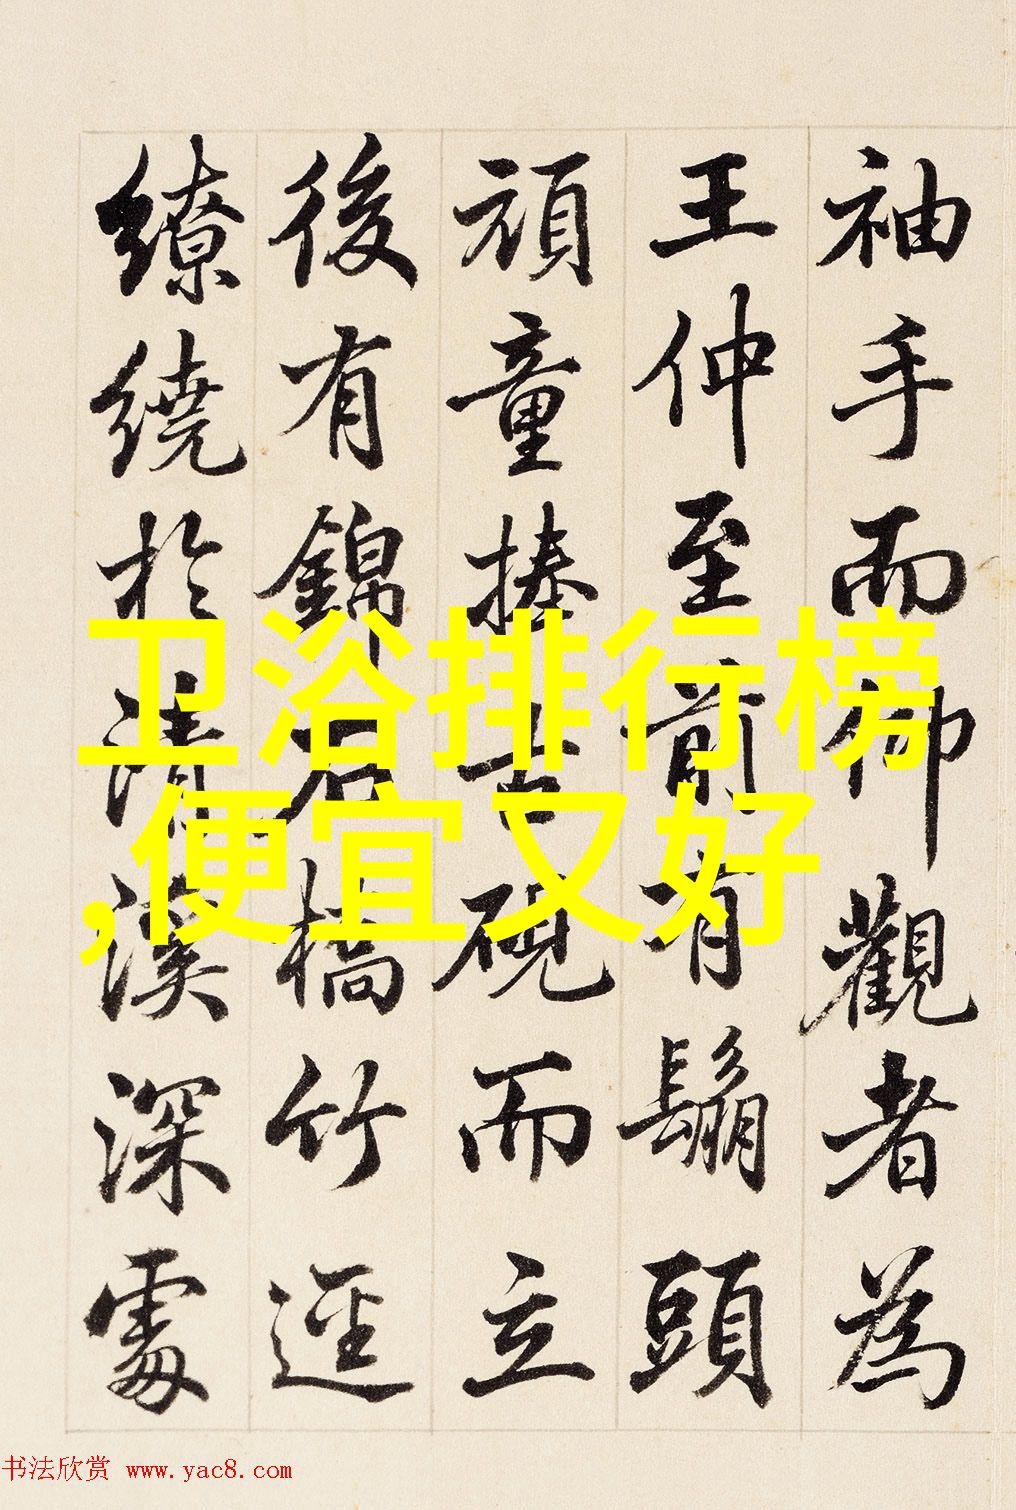 袖手而仰觀者為
王仲至前有鬅頭
頑童捧古硯而立
後有錦石橋竹逕
繚繞於清溪深處
卫浴排行榜
,便宜又好
书法欣赏 www.yac8.com